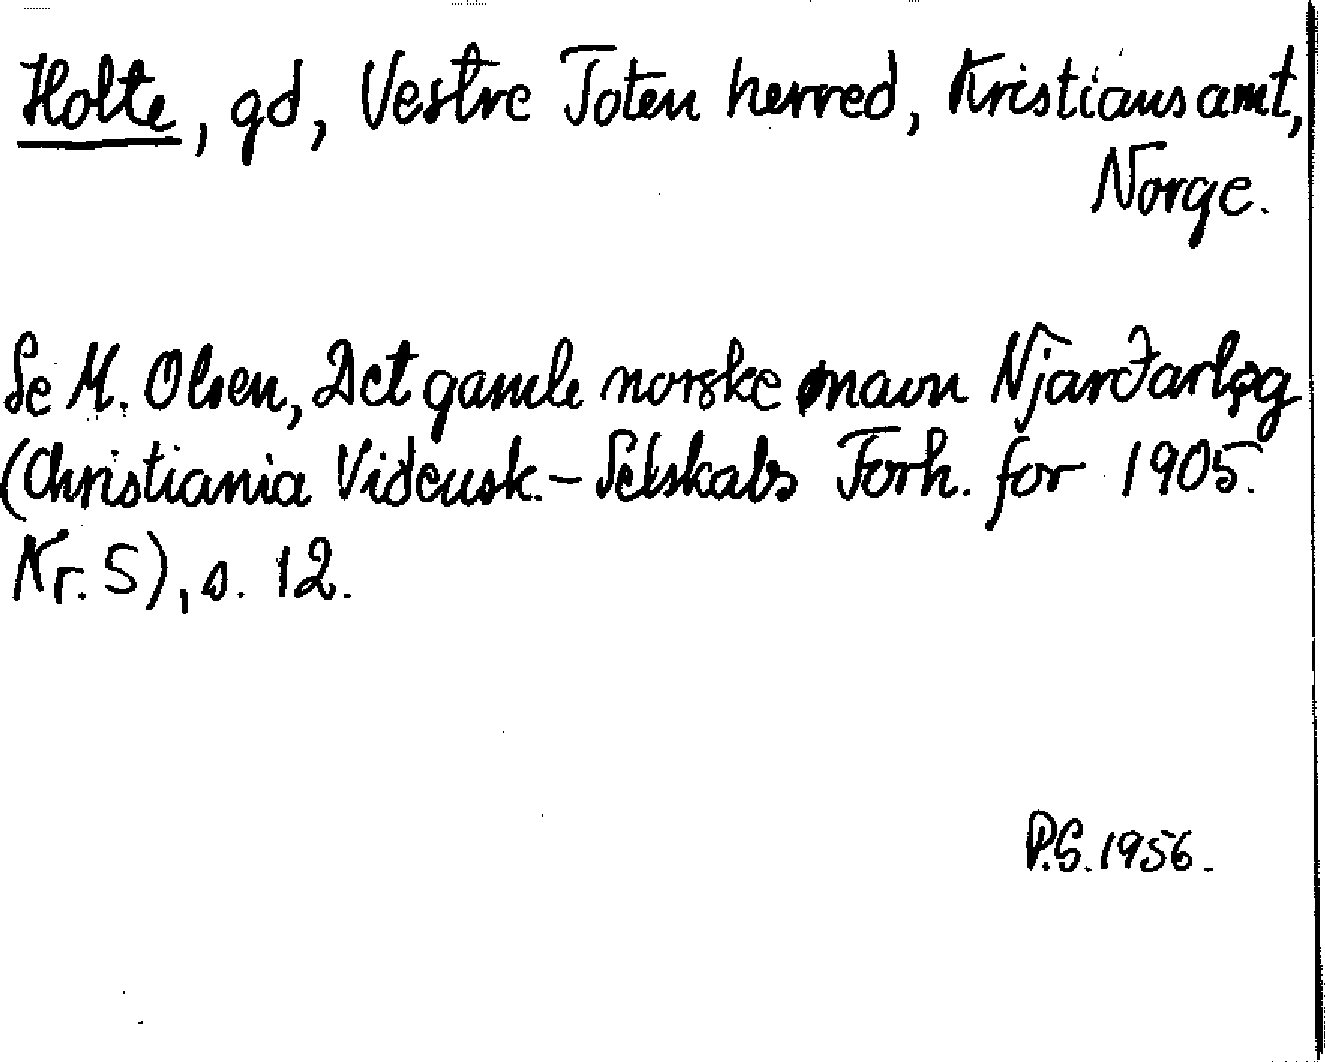 Holte, gd, Vestre Toten herred, Kristians amt,
Norge.
Se M. Olsen, Det gamle norske ønavn Njarðarlǫg
(Christiania Vidensk.-Selskabs Forh. for 1905.
Nr. 5), s. 12.
P.S. 1956.